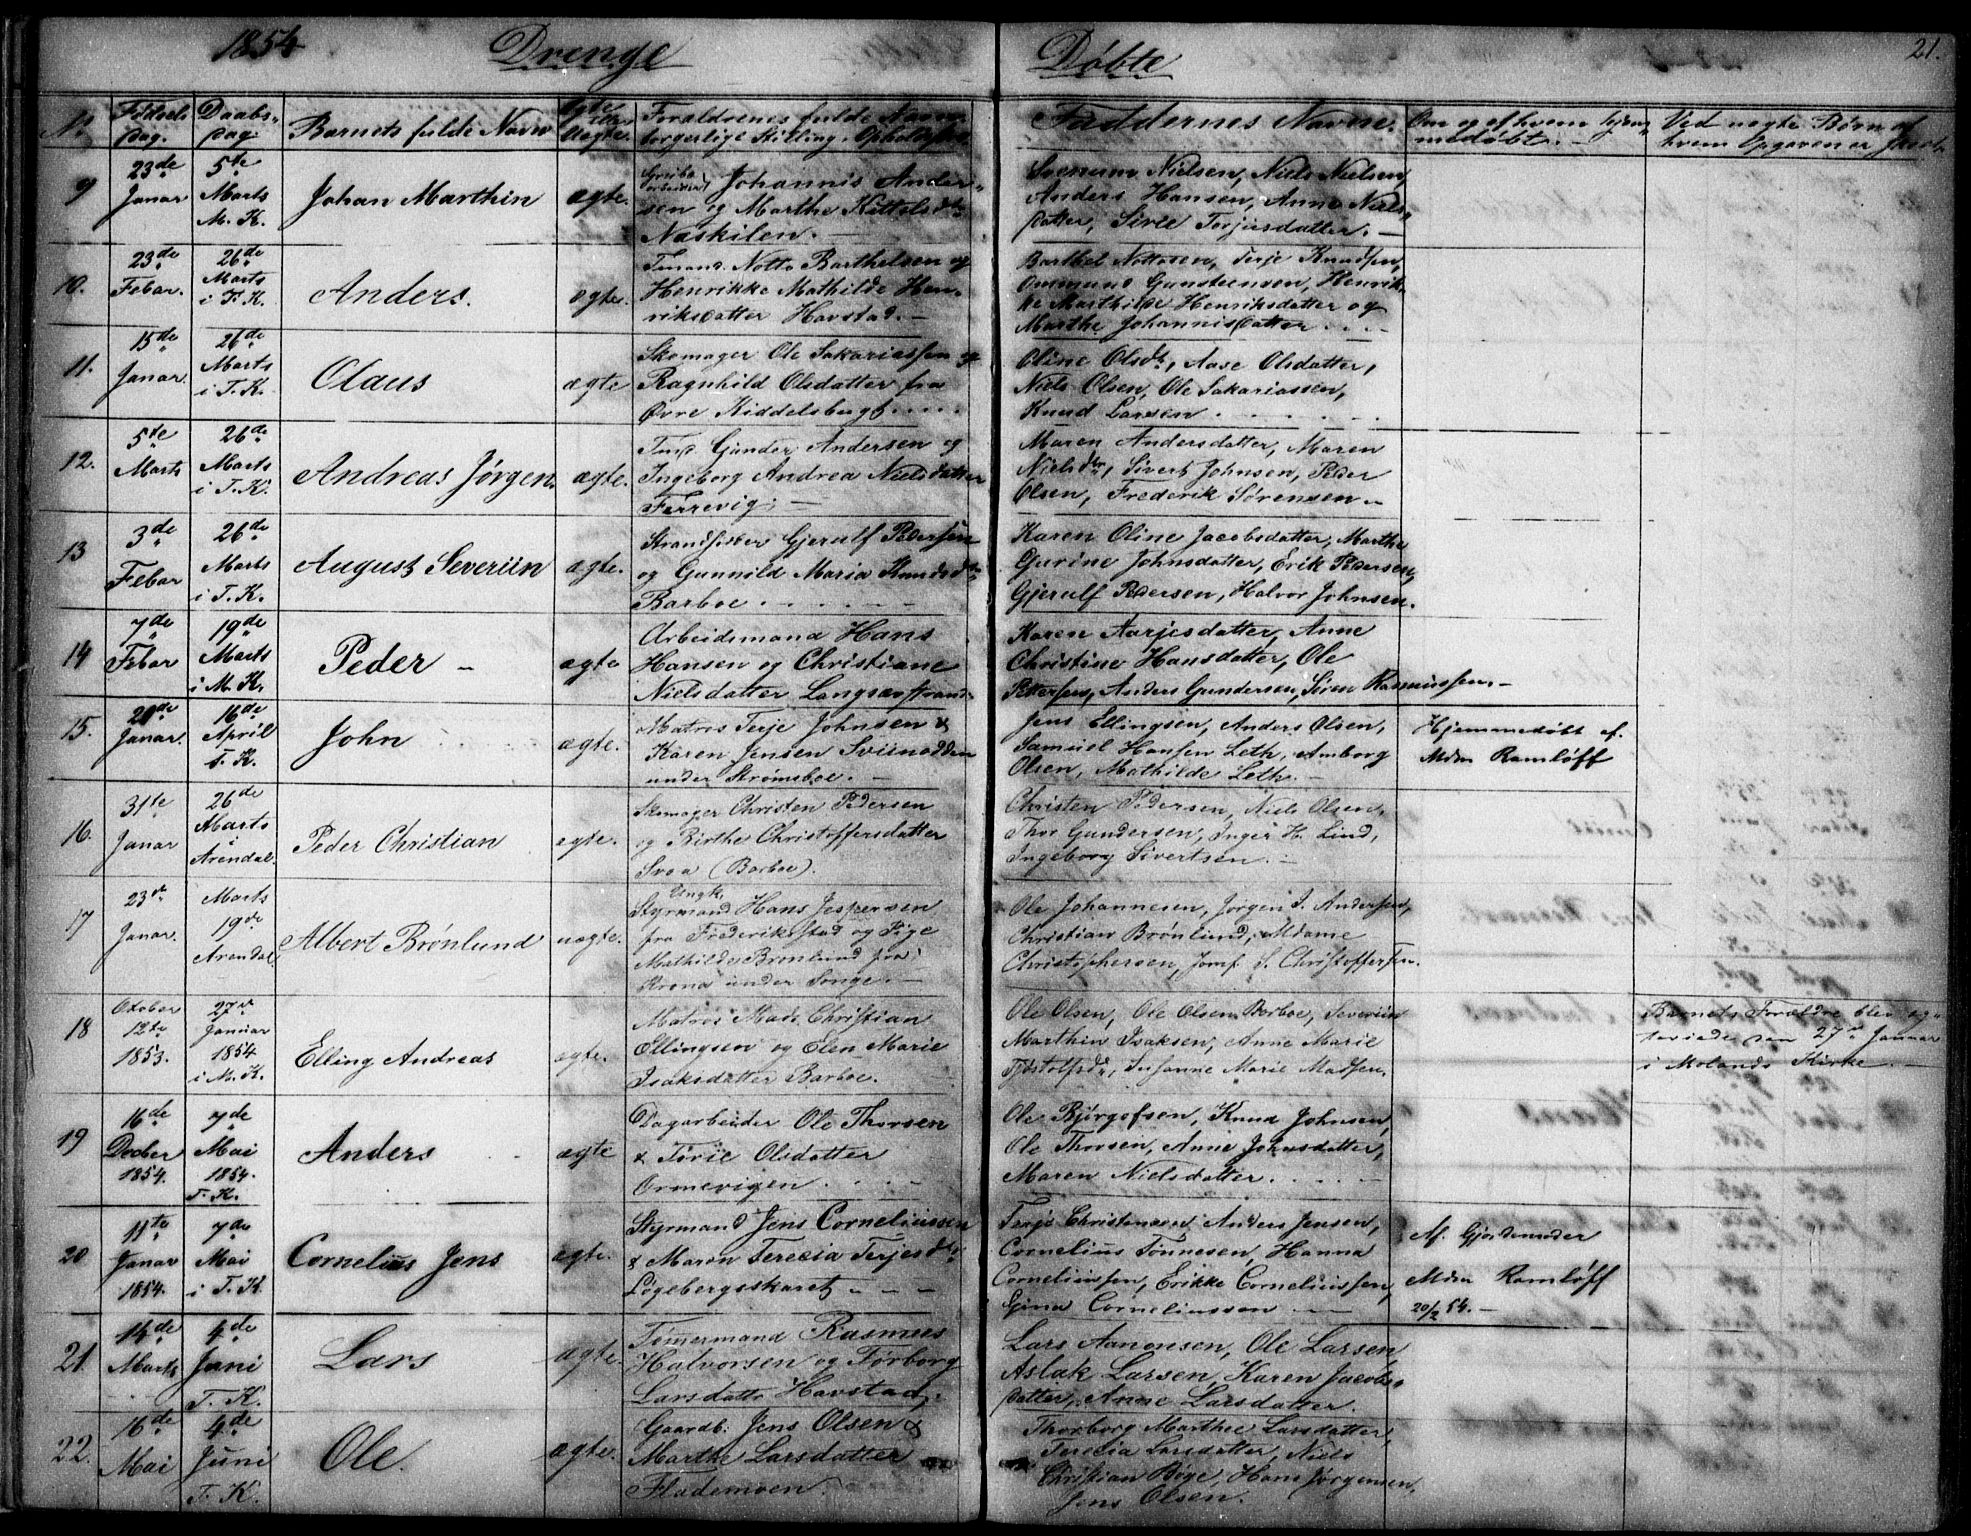 1854 Drenge Døbte 21.
No. Fødsels Dag. Daabs- Dag. Barnets fulde Navn Ægte eller Uægte. Forældrenes fulde Navn borgerlige Stilling, Opholdssted Faddernes Navne. Om og af hvem hjem- medøbt. Ved uægte Børn af hvem Opgaven er
9 23de Janar 5te Marts M. K. Johan Marthin ægte.
Johannis Ander-
sen og Marthe Kittelsdtr
Naskilen.
Svenum Nielsen, Niels Nielsen,
Anders Hansen, Anne Niels-
datter, Sirie Torjusdatter.
10. 23de Febar. 26de Marts i T. K. Anders. ægte.
Tmand. Notto Barthelsen og
Henrikke Mathilde Hen-
riksdatter Havstad.
Barthel Nottosen, Terje Knudsen,
Ommund Gunsteensen, Henrik-
ke Marthilde Henriksdatter og
Marthe Johannisdatter
11. 15de Janar. 26de Marts i T. K. Olaus ægte
Skomager Ole Sakariassen og
Ragnhild Olsdatter fra
Øvre Kiddelsbugt
Oline Olsdtr, Aase Olsdatter,
Niels Olsen, Ole Sakariassen,
Knud Larsen
12. 5te Marts 26de Marts i T. K. Andreas Jørgen. ægte.
Tmd Gunder Andersen og
Ingeborg Andrea Nielsdatter
Færrevig.
Maren Andersdatter, Maren
Nielsdtr, Sivert Johnsen, Peder
Olsen, Frederik Sørensen
13 3de Febar 26de Marts i T. K. August Severiin ægte.
Strandsidder Gjerulf Pedersen
og Gunnild Maria Knudsdtr
Barboe.
Karen Oline Jacobsdatter, Marthe
Gurine Johnsdatter, Erik Pedersen,
Gjerulf Pedersen, Halvor Johnsen.
14 7de Febar 19de Marts i M. K. Peder ægte
Arbeidsmand Hans
Hansen og Christiane
Nielsdatter Langsæstrand.
Karen Aarjesdatter, Anne
Christine Hansdatter, Ole
Pettersen, Anders Gundersen, Søren Rasmussen.
15. 20de Janar. 16de April T. K. John ægte.
Matros Terje Johnsen &
Karen Jensen Sviinodden
under Strømsboe.
Jens Ellingsen, Anders Olsen,
Samuel Hansen Leth, Amborg
Olsen, Mathilde Leth.
Hjemmedøbt af.
Mdm Ramløff
16. 31te Janar 26de Marts i Arendal. Peder Christian ægte.
Skomager Christen Pedersen
og Birthe Christoffersdatter
Svaa (Barboe).
Christen Pedersen, Niels Olsen,
Thor Gundersen, Inger H. Lind,
Ingeborg Sivertsen.
17 23de Janar. Marts 19de Arendal Albert Brønlund uægte.
Ungk.
Styrmand Hans Jespersen
fra Frederikstad og Pige
Mathilde Brønlund fra
Krona under Songe.
Ole Johannesen, Jørgen J. Andersen,
Christian Brønlund, Madame
Christophersen, Jomf. S. Christoffersen.
18 October 12te 1853. 27de Januar 1854 i M. K. Elling Andreas ægte.
Matros Mads Christian
Ellingsen og Elen Marie
Isaksdatter Barboe.
Ole Olsen, Ole Olsen Barboe, Severiin
Marthin Isaksen, Anne Marie
Tjøstolfsdtr, Susanne Marie Madsen.
Barnets Forældre blev æg-
teviede den 27de Januar
i Molands Kirke.
19 16de Decber 1854. 7de Mai 1854. T. K. Anders ægte
Dagarbeider Ole Thorsen
& Torie Olsdatter
Ormevigen
Ole Bjørgofsen, Knud Johnsen,
Ole Thorsen, Anne Johnsdatter,
Maren Nielsdatter.
20 11te Janar 1854. 7de Mai i T. K. Cornelius Jens ægte.
Styrmand Jens Corneliussen
& Maren Terecia Terjesdtr
Løgebergsskaret
Terje Christensen, Anders Jensen,
Cornelius Tønnesen, Hanna
Corneliussen, Erikke Corneliussen,
Gina Corneliussen
Af Gjordemoder
Mdm Ramløff
20/2 54.
21. 14de Marts 4de Juni T. K. Lars ægte.
Timermand Rasmus
Halvorsen og Tørborg
Larsdattr Havstad.
Lars Aanonsen, Ole Larsen,
Aslak Larsen, Karen Jacobs-
datter, Anne Larsdatter.
22. 16de Mai 4de Juni T. K. Ole. ægte.
Gaardb. Jens Olsen &
Marthe Larsdatter
Flademoen.
Thorborg Marthee Larsdatter,
Terecia Larsdatter, Niels
Christian Bøge, Hans Jørgensen,
Jens Olsen.